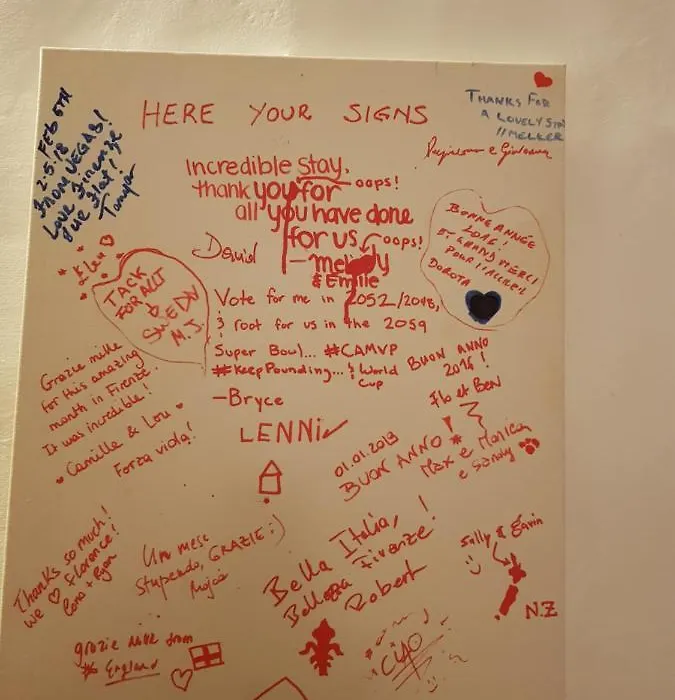 HERE YOUR SIGNS
FEB 6TH
2.5.18
FROM VEGAS!
Love Firenze
Due Flat!
Tanya
THANKS FOR
A LOVELY STAY
//MELKER
Incredible stay.
thank you for oops!
all you have done
for us, oops!
- melody
& Emile
David
BONNE ANNÉE
2016!
ET GRAND MERCI
POUR l'ACCUEIL
DOROTA
Elen
TACK
FOR ALLT
SWEDEN
M.J.
Vote for me in 2052/2048,
& root for us in the 2059
Super Bowl... #CAMVP
#KeepPounding... & World
Cup
-Bryce
BUON ANNO
2016!
Flo et BEN
Grazie mille
for this amazing
month in Firenze.
It was incredible!
Camille & Lou
Forza viola!
LENNi
01.01.2019
BUON ANNO
Max e Monica
e Sandy
Thanks so much!
we Florence!
+ Ryan
Un mese
stupendo, GRAZIE :)
Bella Italia,
Bellezza Firenze!
Robert
Sally & Gavin
N.Z
grazie mille from
England
CIAO